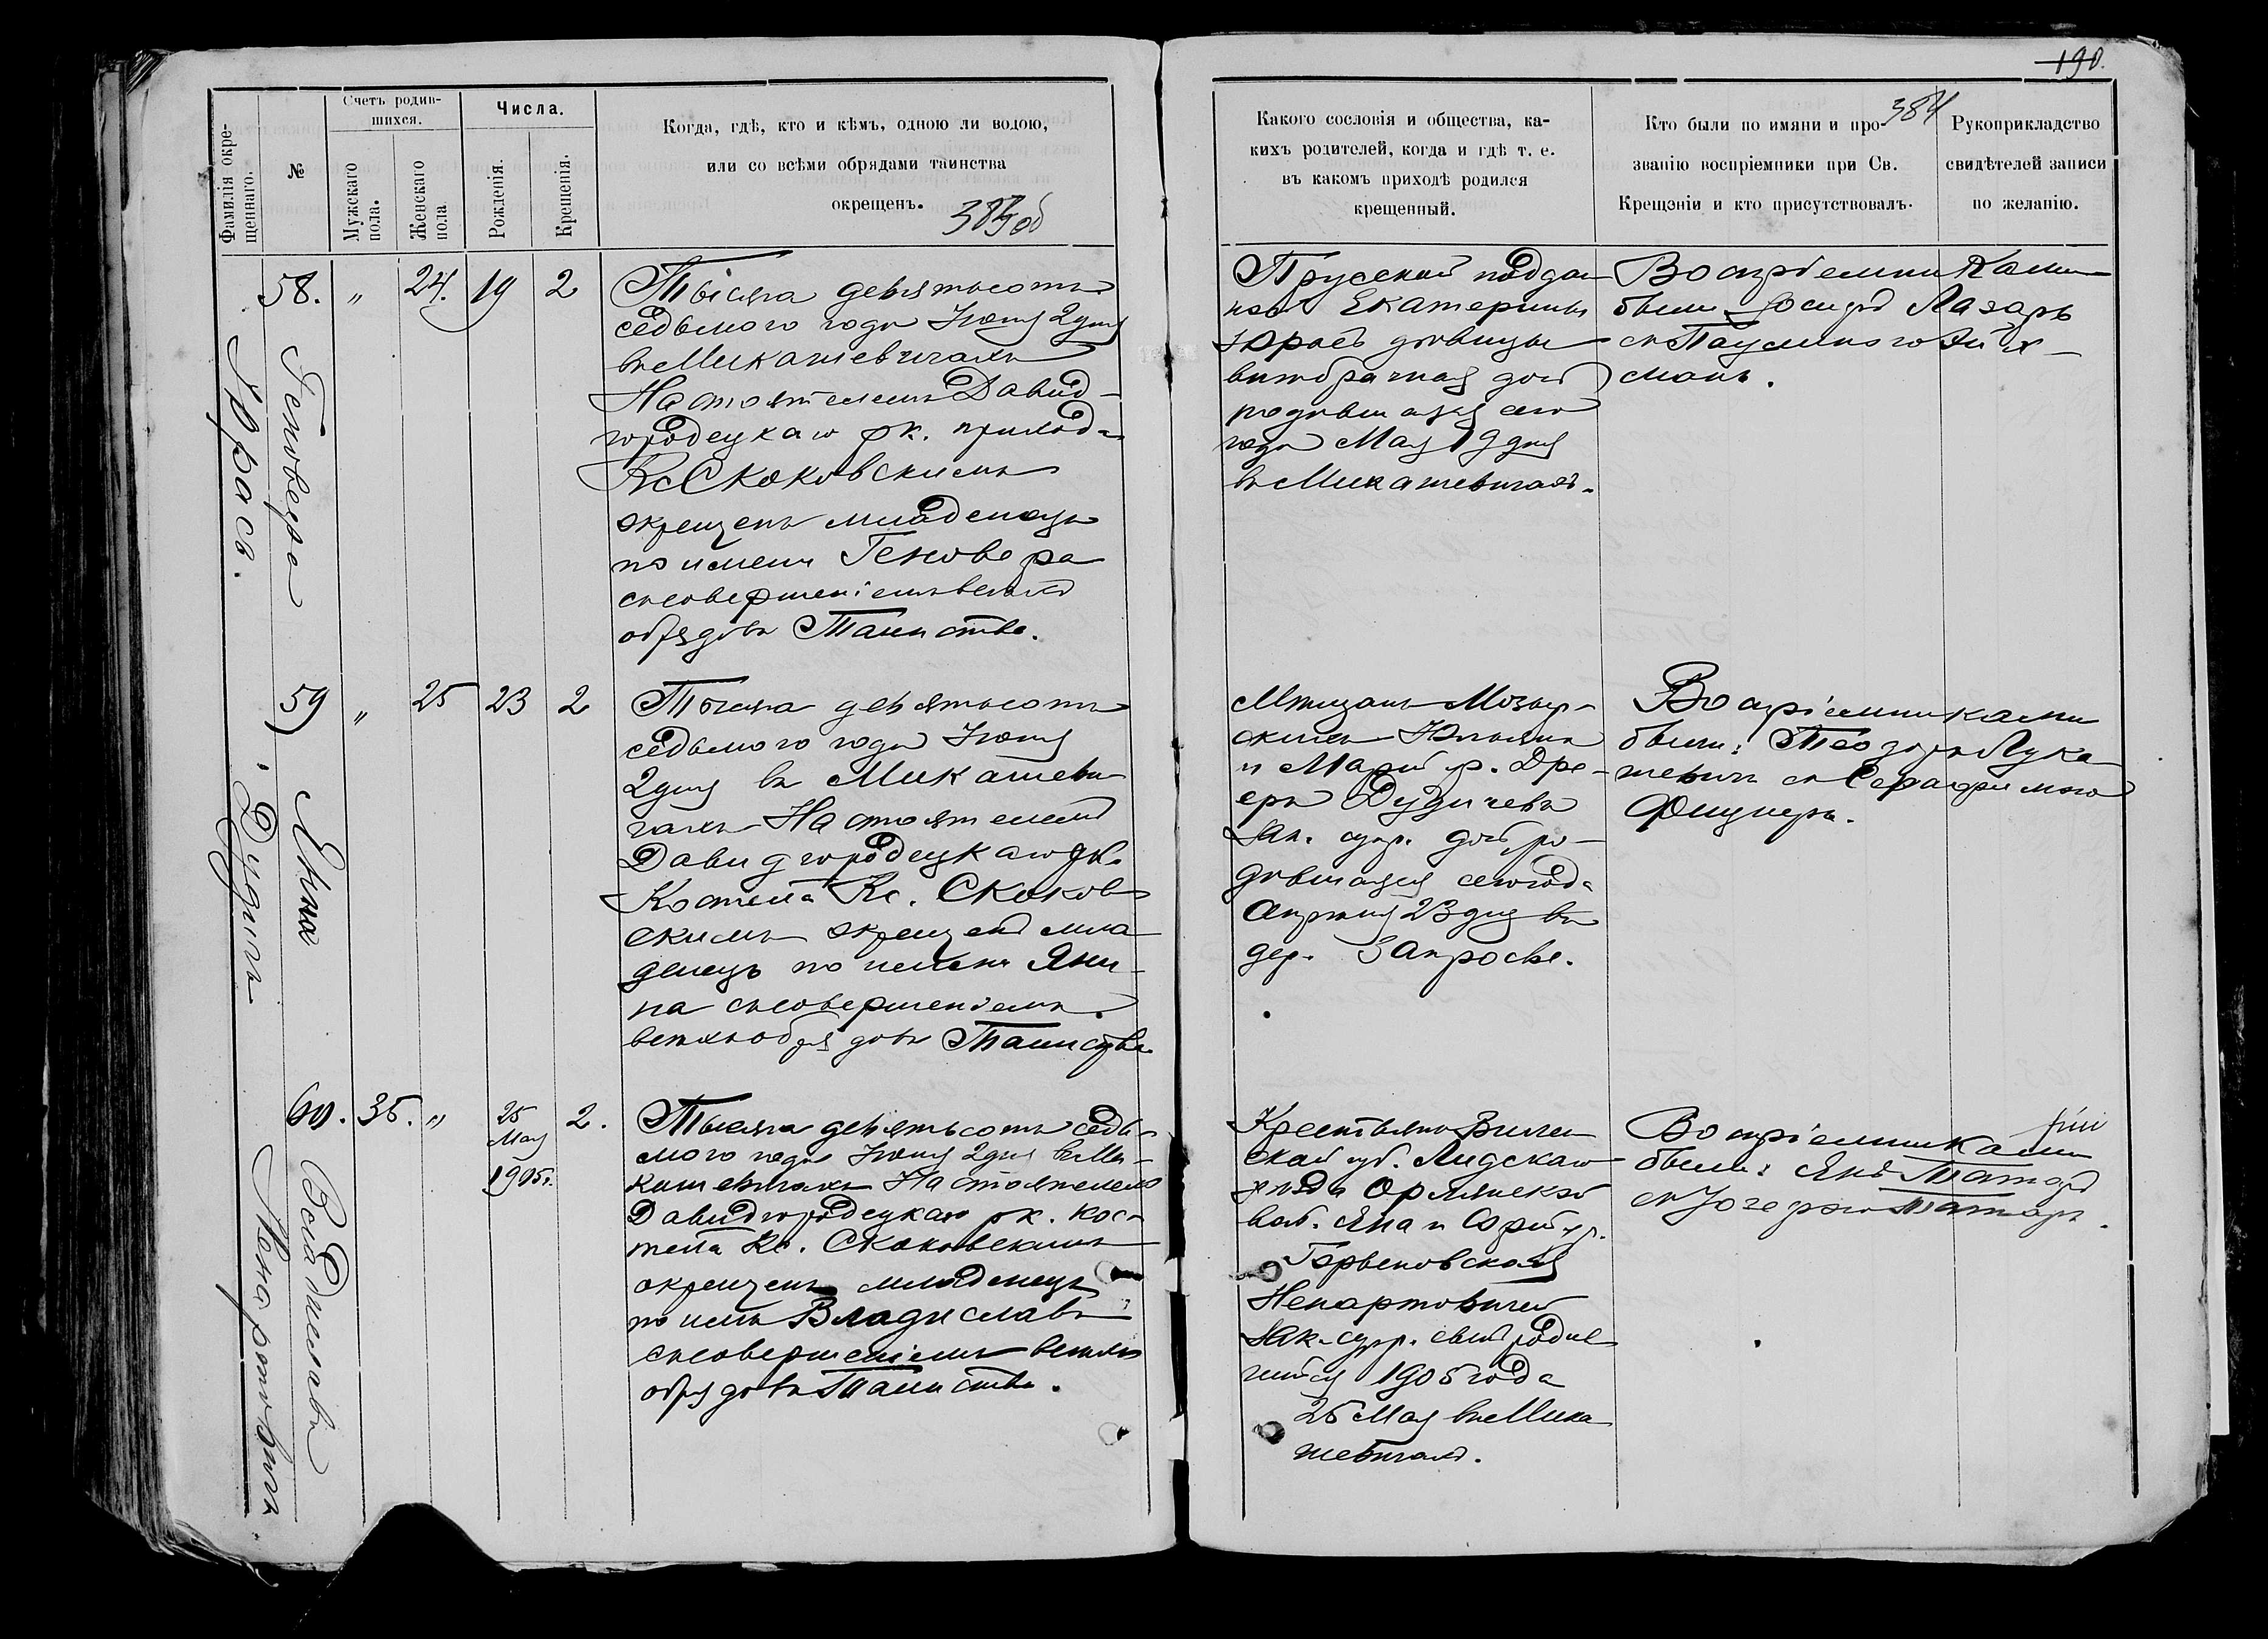 190.
384
Фамилія окре-
щеннаго.
№
Счетъ родив-
шихся.
Мужскаго
пола.
Женскаго
пола
Числа.
Рожденія.
Крещенія.
Когда, гдѣ, кто и кѣмъ, одною ли водою,
или со всѣми обрядами таинства
окрещенъ.
383об
Какого сословія и общества, ка-
кихъ родителей, когда и гдѣ т. е.
въ какомъ приходѣ родился
крещенный.
Кто были по имяни и про-
званію воспріемники при Св.
Крещэніи и кто присутствовалъ.
Рукоприкладство
свидѣтелей записи
по желанію.
58. " 24. 19 2
Геновефа
Тысяча девятьсотъ
седьмого года Іюня 2 дня
въ Микашевичахъ
Настоятелемъ Давид-
городецкаго рк. прихода
Кс Скоковскимъ
окрещенъ младенецъ
по имени Геновефа
съ совершеніемъ всѣхъ
обрядовъ Таинства.
Прусской поддан
ной Екатерины
дѣвицы
внѣбрачная дочь
родившаяся сего
года Мая 19 дня
въ Микашевичахъ.
Воспріемниками
были Іосифъ Лазарь
съ Паулиною
59 " 25 23 2
Янина
Дудичъ
Тысяча девятьсотъ
седьмого года Іюня
2 дня въ Микашеви
чахъ Настоятелемъ
Давидгородецкаго рк.
Костела Кс. Скоков
скимъ окрещенъ мла
денецъ по имени Яни-
на съ совершеніемъ
всѣхъ обрядовъ Таинства
Мѣщанъ Мозыр-
скихъ Юльяна
и Маріи ур.
Дудичевъ
Зак. супр. дочь ро-
дившаяся сего года
Апрѣля 23 дня въ
дер. Запросье.
Воспріемниками
были: Теодоръ Лука
шевичъ съ Серафимою
60. 35. " 25
Мая
1905г.
2.
Владиславъ
Непартовичъ
Тысяча девятьсотъ седь-
мого года Іюня 2 дня въ Ми-
кашевичахъ Настоятелемъ
Давидгородецкаго рк. кос-
тела Кс. Скоковскимъ
окрещенъ младенецъ
по имени Владиславъ
съ совершеніемъ всѣхъ
обрядовъ Таинства.
Крестьянъ Вилен
ской губ. Лидскаго
уѣзда Орлянской
вол. Яна и Софіи ур.
Непартовичей
Зак. супр. сынъ родив
шійся 1905 года
25 Мая въ Мика
шевичахъ.
Воспріемниками
были: Янъ Татаръ
съ Юзефою Татаръ.